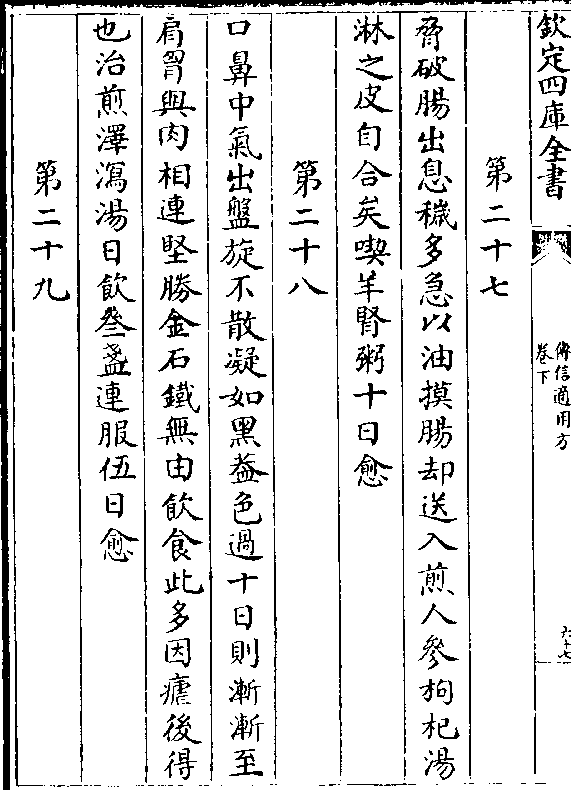 欽定四庫全書
傳信適用方
卷下
六十七
第二十七
脅破腸出息穢多急以油摸腸却送入煎人參枸杞湯
淋之皮自合矣喫羊腎粥十日愈
第二十八
口鼻中氣出盤旋不散凝如黑葢色過十日則漸漸至
肩胷與肉相連堅勝金石鐵無由飲食此多因瘧後得
也治煎澤瀉湯日飲叄盞連服伍日愈
第二十九